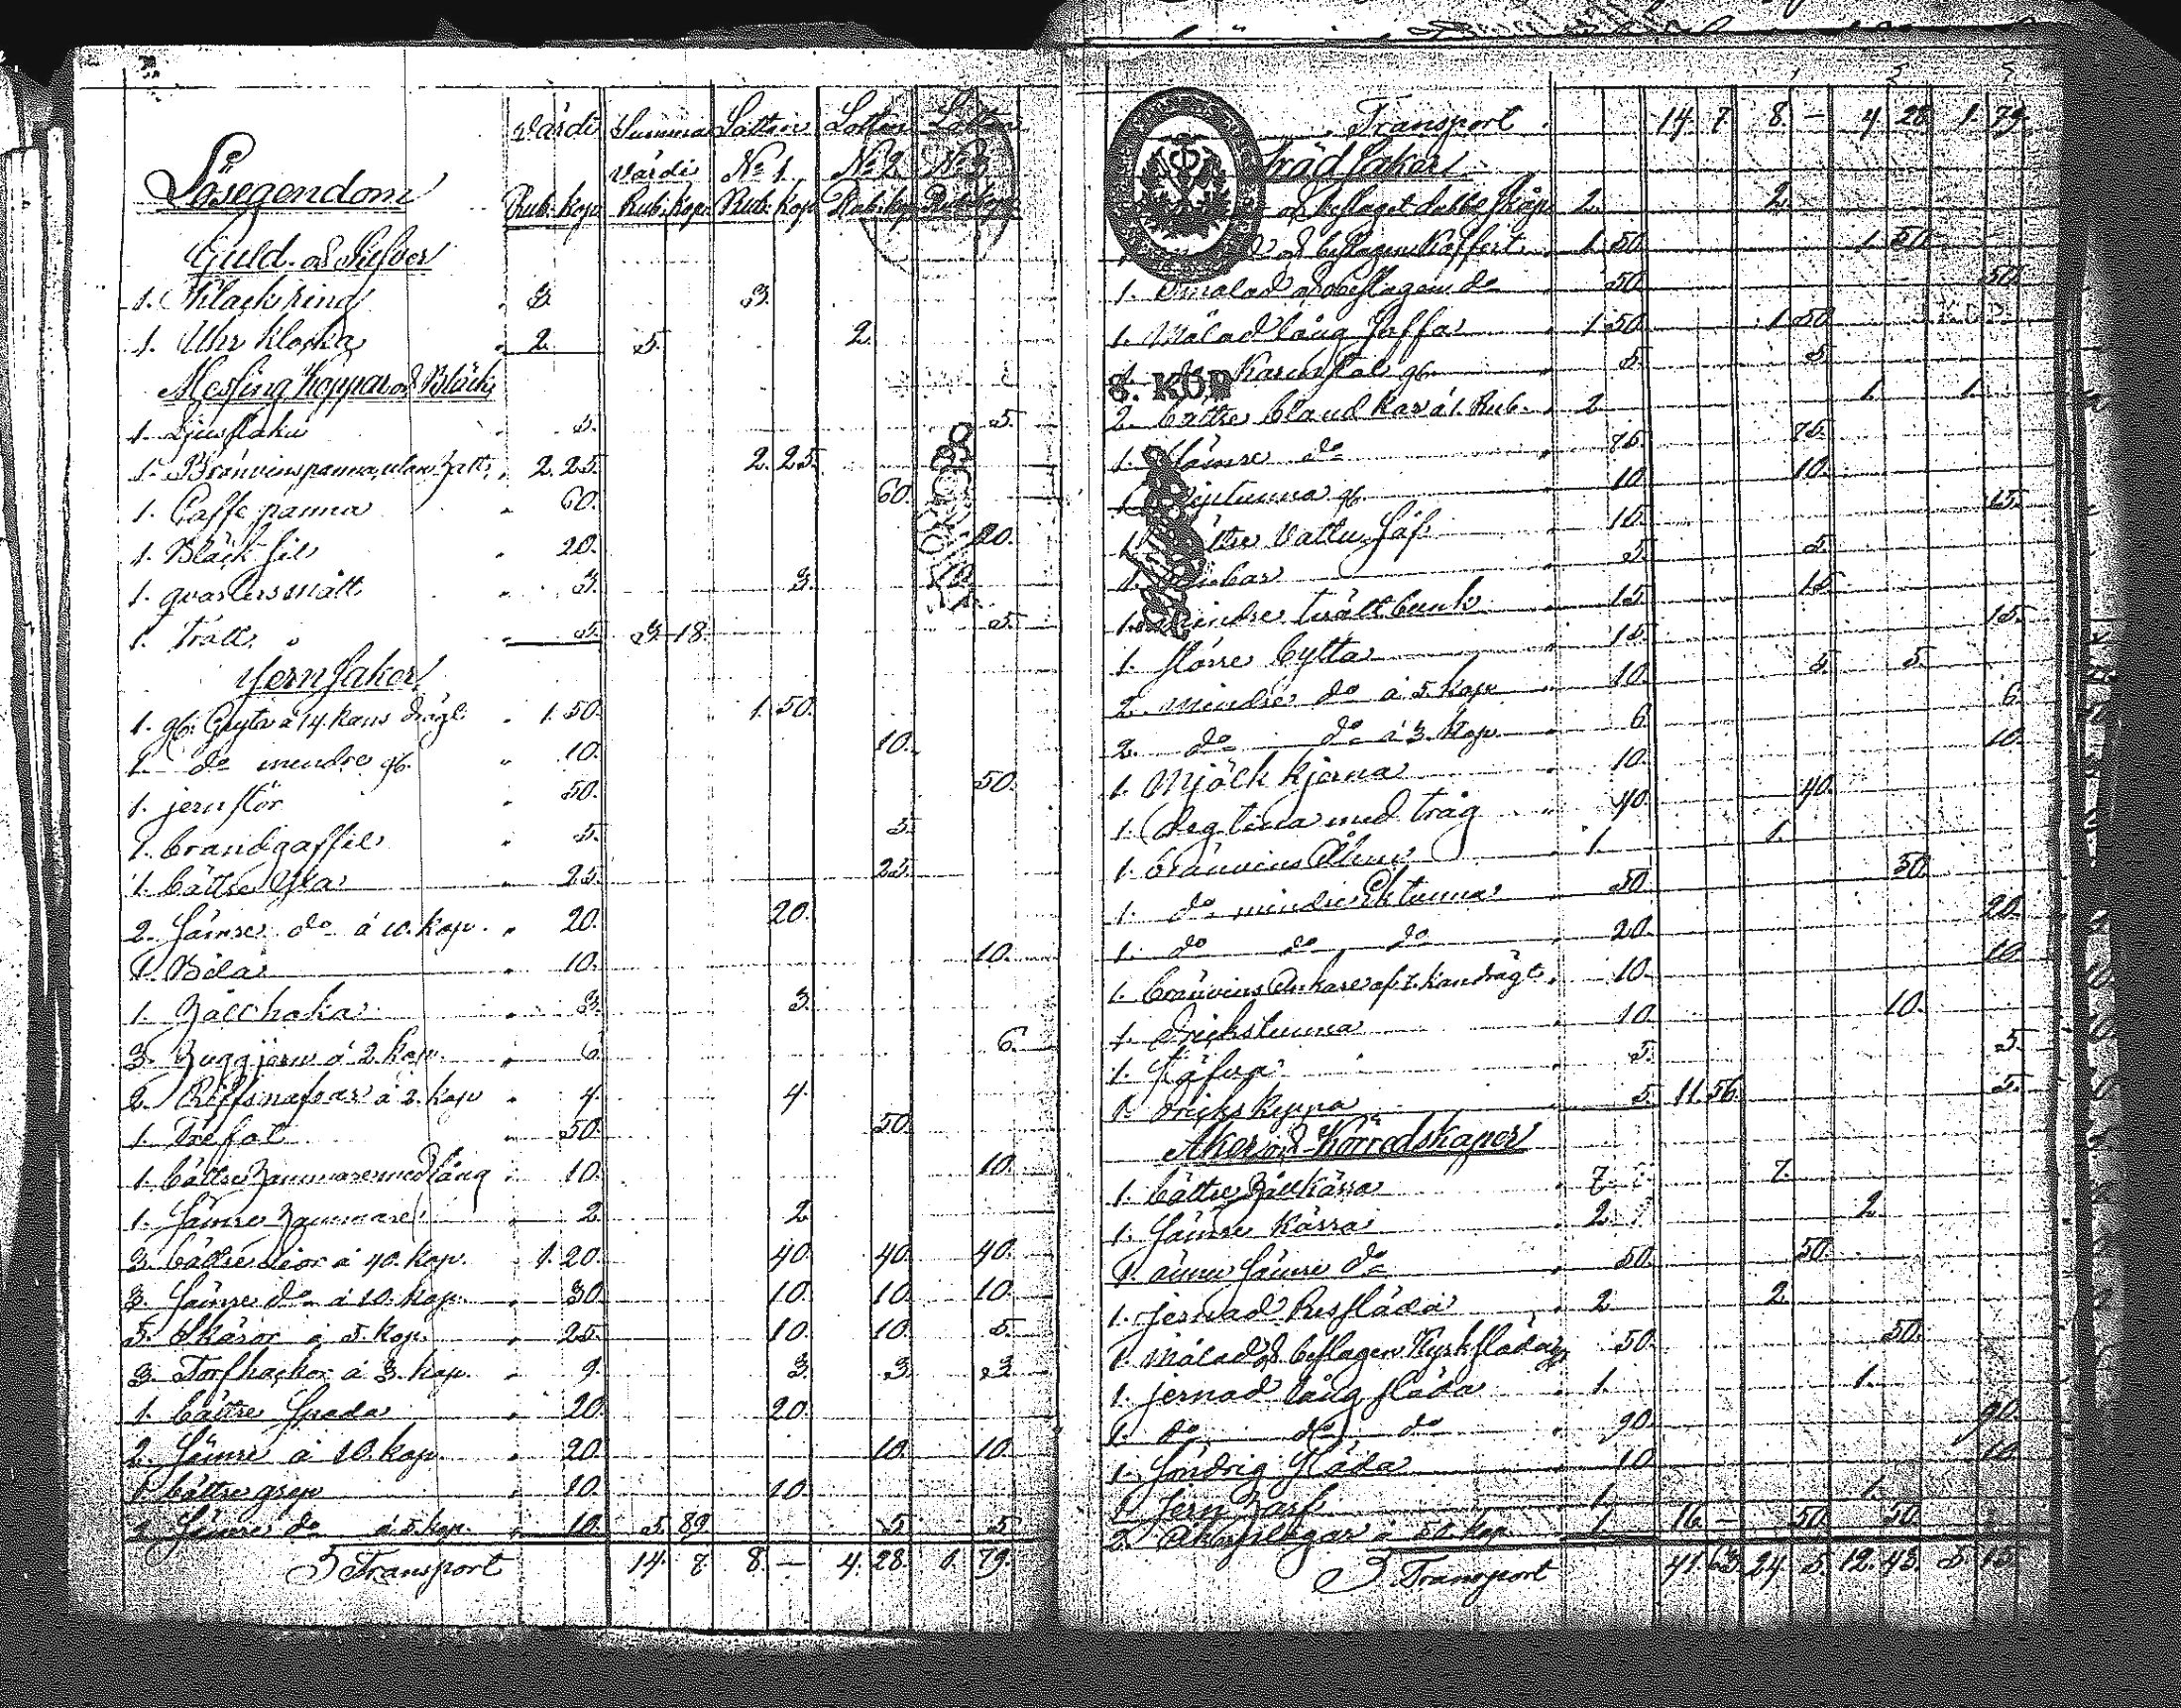 Värde Summa Lotten Lotten Lotten
Värde No 1 No 2 No 3
Lösegendom Rub. kop. Rub. kop. Rub. kop. Rub. kop. Rub. kop.
Guld och Silfver
1. Klackring 3. 3.
1. Uhr Klocka 2. 5. 2.
Messing Koppar och Bläck
1. Ljusstaku 5. 5.
1. Bränvinspanna utan hatt 2. 25. 2. 25.
1. Caffe panna 60. 60.
1. Bläck sil 20. 20.
1. qvartersmått 3. 3.
1. tratt 5. 3. 18. 5.
Jern saker
1. gl. Gryta à 14. kans drägt 1. 50. 1. 50.
1. do mindre gl. 10. 10.
1. jernstör 50. 50.
1. brandgaffel 5. 5.
1. bättre Yxa 25. 25.
2. sämre do à 10. kop. 20. 20.
1. Bila 10. 10.
1. hake 3. 3.
3. huggjern à 2. kop. 6. 6.
2. à 2. kop 4. 4.
1. Trefot 50. 50.
1. bättre hammare med tång 10. 10.
1. sämre hammare 2. 2.
3. bättre liar à 40. kop. 1. 20. 40. 40. 40.
3. sämre do à 10. kop. 30. 10. 10. 10.
5. Skäror à 5. kop. 25. 10. 10. 5.
3. Torfhackor à 3. kop. 9. 3. 3. 3.
1. bättre Spada 20. 20.
2. sämre à 10. kop. 20. 10. 10.
1. bättre grep 10. 10.
2. sämre do à 5. kop. 10. 5. 89. 5. 5.
Transport 14. 7. 8. — 4. 28. 1. 79.
Transport 14. 7. 8. — 4. 28. 1. 79.
Träd saker
och beslaget dubbelskåp 2. 2.
och beslagen Koffert 1. 50. 1. 50.
1. omålad obeslagen do 50. 50.
1. Målad lång Soffa 1. 50. 1. 50.
1. Karmstol gl. 5. 5.
8. KOP
2. bättre bland kar à 1. Rub. 2. 1. 1.
1. sämre do 75. 75.
tunna gl. 10. 10.
bättre Vattu så 15. 15.
5. 5.
1. mindre tvättbunk 15. 15.
1. större bytta 15. 15.
2. mindre do à 5. kop 10. 5. 5.
2. do do à 3. kop 6. 6.
1. Mjölk kjerna 10. 10.
1. degtina med tråg 40. 40.
1. bränvins Åhm 1. 1.
1. do mindre Ektunna 50. 50.
1. do do do 20. 20.
1. bränvins Ankare af 7. kan drägt 10. 10.
1. drickstunna 10. 10.
1. Skäppa 5. 5.
1. drickskyppa 5. 11. 56. 5.
Åker och Körredskaper
1. bättre Kärra 7. 7.
1. sämre Kärra 2. 2.
1. ännu sämre do 50. 50.
1. jernad Resslada 2. 2.
1. målad och beslagen Kyrkslada gl. 50. 50.
1. jernad lång slada 1. 1.
1. do do do 90. 90.
1. söndrig slada 10. 10.
1. Jern harf 1. 1.
2. åkerplogar à 50. kop 1. 16. — 50. 50.
Transport 41. 63. 24. 5. 12. 43. 5. 15.